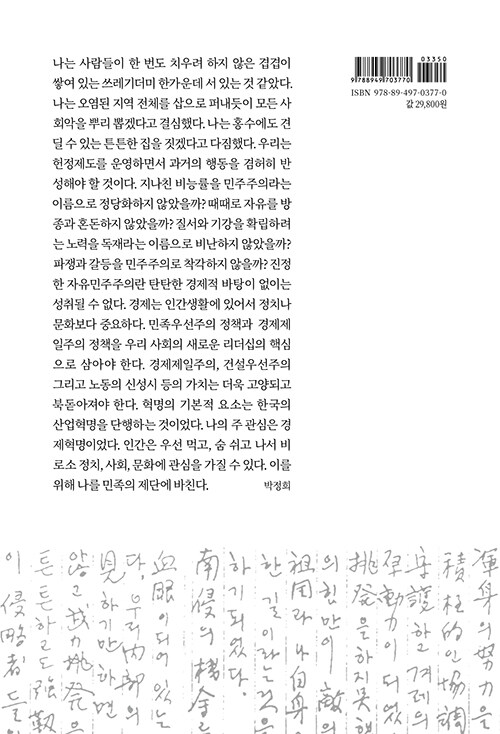 나는 사람들이 한 번도 치우려 하지 않은 겹겹이
쌓여 있는 쓰레기더미 한가운데 서 있는 것 같았다.
나는 오염된 지역 전체를 삽으로 퍼내듯이 모든 사
회악을 뿌리 뽑겠다고 결심했다. 나는 홍수에도 견
딜 수 있는 튼튼한 집을 짓겠다고 다짐했다. 우리는
헌정제도를 운영하면서 과거의 행동을 겸허히 반
성해야 할 것이다. 지나친 비능률을 민주주의라는
이름으로 정당화하지 않았을까? 때때로 자유를 방
종과 혼돈하지 않았을까? 질서와 기강을 확립하려
는 노력을 독재라는 이름으로 비난하지 않았을까?
파쟁과 갈등을 민주주의로 착각하지 않을까? 진정
한 자유민주주의란 탄탄한 경제적 바탕이 없이는
성취될 수 없다. 경제는 인간생활에 있어서 정치나
문화보다 중요하다. 민족우선주의 정책과 경제제
일주의 정책을 우리 사회의 새로운 리더십의 핵심
으로 삼아야 한다. 경제제일주의, 건설우선주의
그리고 노동의 신성시 등의 가치는 더욱 고양되고
북돋아져야 한다. 혁명의 기본적 요소는 한국의
산업혁명을 단행하는 것이었다. 나의 주 관심은 경
제혁명이었다. 인간은 우선 먹고, 숨 쉬고 나서 비
로소 정치, 사회, 문화에 관심을 가질 수 있다. 이를
위해 나를 민족의 제단에 바친다.
박정희
03350
9 788949 703770
ISBN 978-89-497-0377-0
값 29,800원
渾身의 努力을
積極的인 協調
守護하고 겨레의
原動力이 되었
挑發을 하지 못해
의 힘만이 敵의
祖国과 나 自身
한 길이라는 것을
하기 되었다.
南侵의 機会를
血眼이 되어 있는
다. 우리 内部의
見하기만 하면
않고 武力挑發을
튼튼하고도 強靱
이 侵略者들을